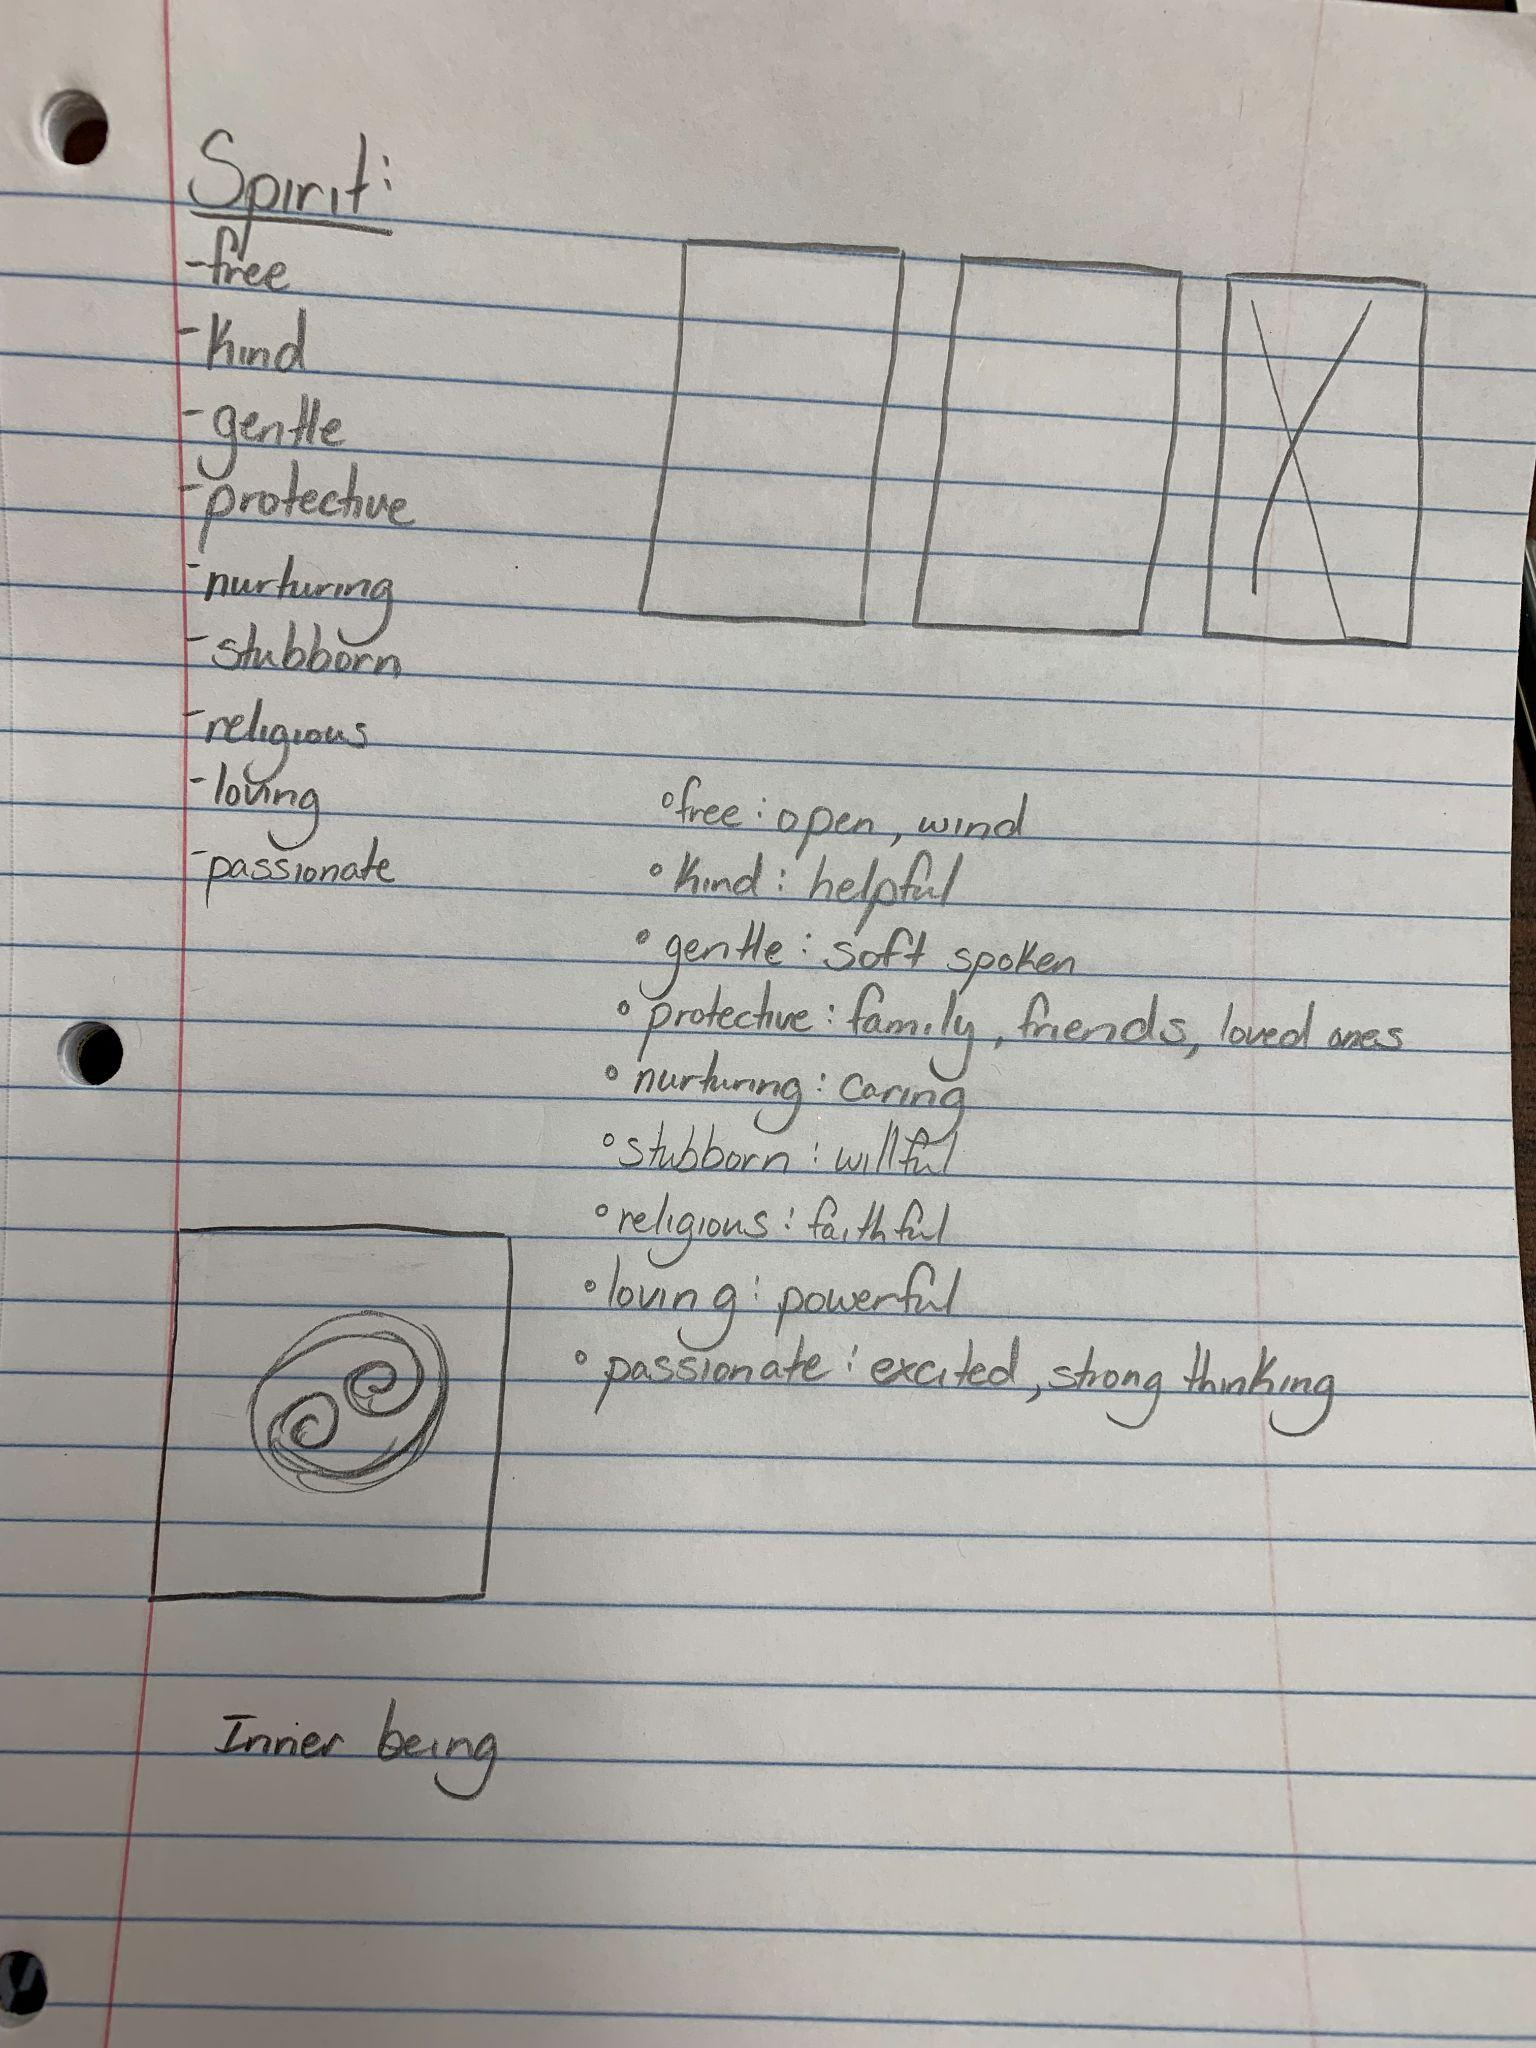 Spirit:
-free
-Kind
-gentle
-protective
-nurturing
-stubborn
-religious
-loving
-passionate
°free: open, wind
°Kind: helpful
°gentle: soft spoken
°protective: family, friends, loved ones
°nurturing: caring
°stubborn: willful
°religious: faithful
°loving: powerful
°passionate: excited, strong thinking
Inner being